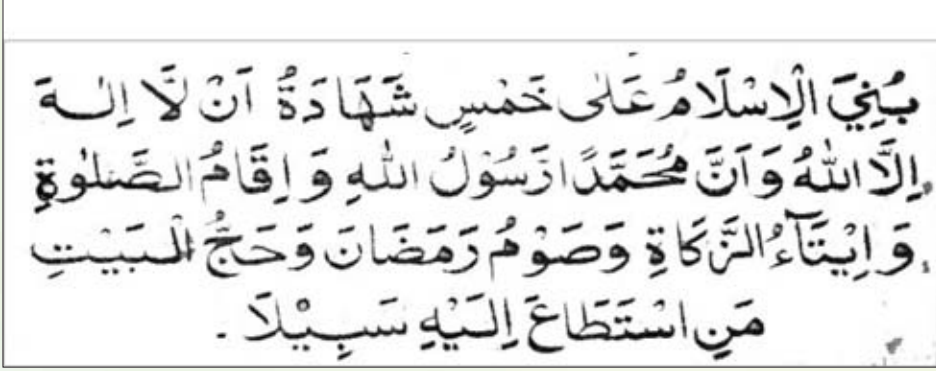 بُنِيَ الْاِسْلَامُ عَلٰى خَمْسٍ شَهَادَةُ اَنْ لَّا اِلٰهَ
اِلَّا اللهُ وَاَنَّ مُحَمَّدًا رَّسُوْلُ اللهِ وَاِقَامُ الصَّلٰوةِ
وَاِيْتَآءُ الزَّكَاةِ وَصَوْمُ رَمَضَانَ وَحَجُّ الْبَيْتِ
مَنِ اسْتَطَاعَ اِلَيْهِ سَبِيْلًا .